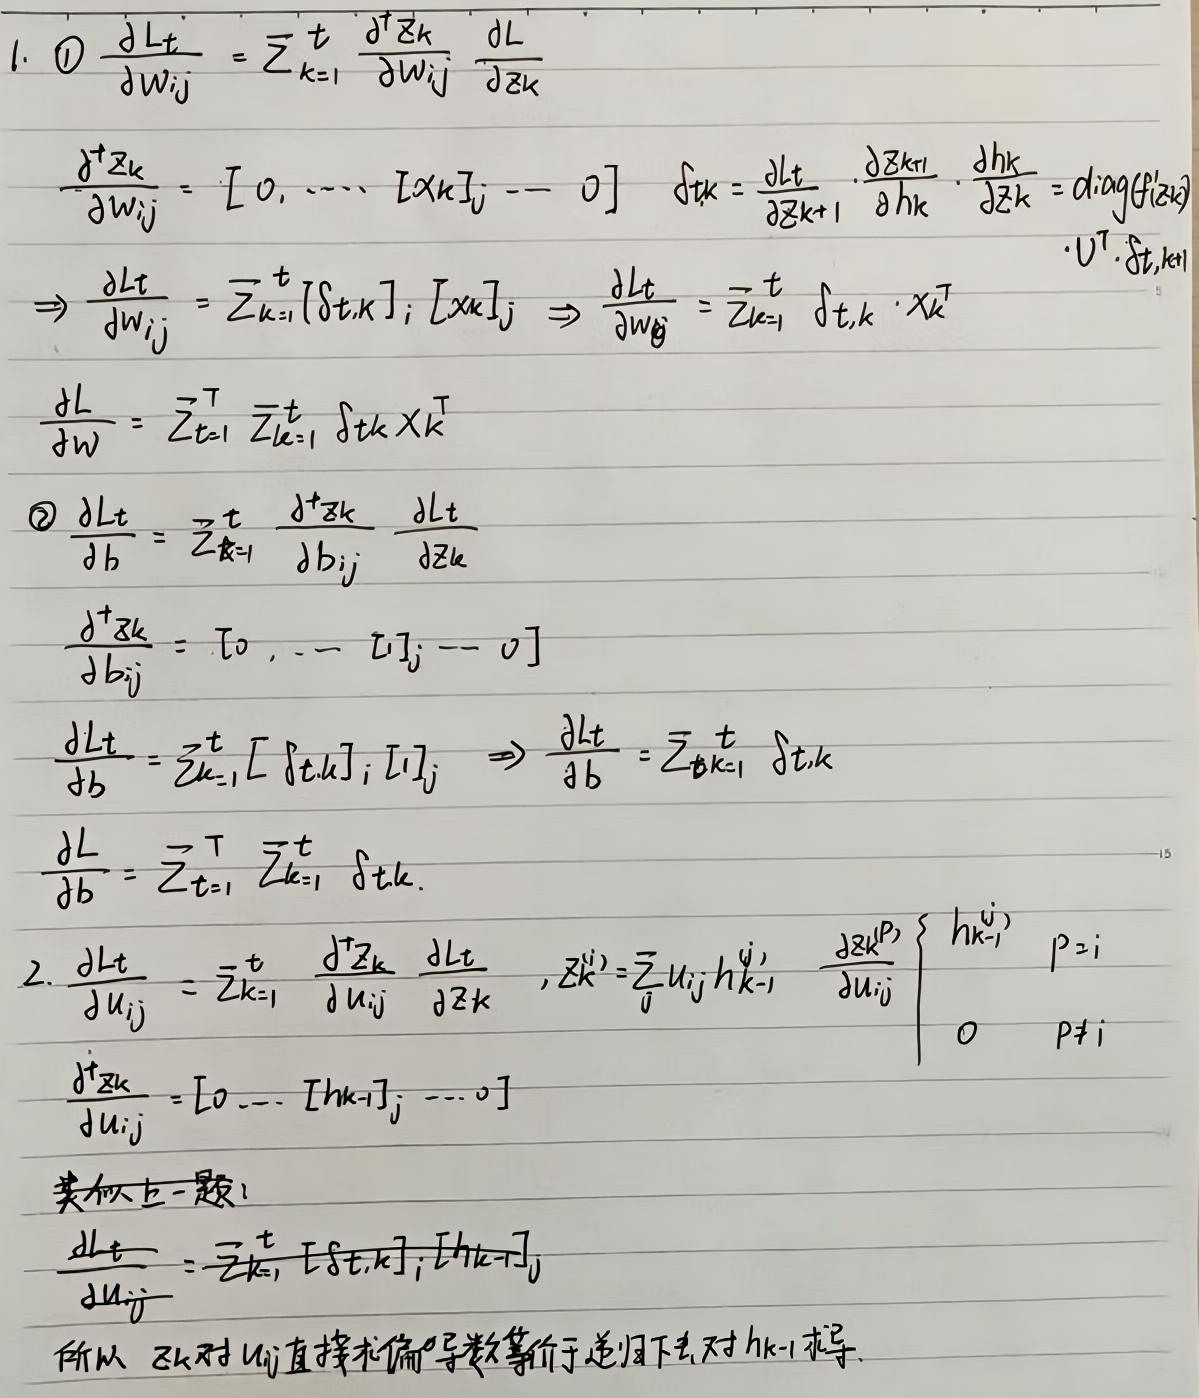 1. ① ∂Lt/∂Wij = Σ_{k=1}^{t} ∂⁺Zk/∂Wij ∂L/∂Zk
∂⁺Zk/∂Wij = [0, ..... [Xk]j --- 0] δt,k = ∂Lt/∂Zk+1 · ∂Zk+1/∂hk · ∂hk/∂Zk = diag(f'(Zk))
· U^T · δt,k+1
⇒ ∂Lt/∂Wij = Σ_{k=1}^{t} [δt,k]i [Xk]j ⇒ ∂Lt/∂W = Σ_{k=1}^{t} δt,k · Xk^T
∂L/∂W = Σ_{t=1}^{T} Σ_{k=1}^{t} δtk Xk^T
② ∂Lt/∂b = Σ_{k=1}^{t} ∂⁺Zk/∂bij ∂Lt/∂Zk
∂⁺Zk/∂bij = [0, .--- [1]j --- 0]
∂Lt/∂b = Σ_{k=1}^{t} [δt.k]i [1]j ⇒ ∂Lt/∂b = Σ_{k=1}^{t} δt.k
∂L/∂b = Σ_{t=1}^{T} Σ_{k=1}^{t} δt.k.
2. ∂Lt/∂Uij = Σ_{k=1}^{t} ∂⁺Zk/∂Uij ∂Lt/∂Zk , Zk^(i) = Σ_j Uij hk-1^(j) ∂Zk^(p)/∂Uij { hk-1^(j) p=i
0 p≠i
∂⁺Zk/∂Uij = [0 ---- [hk-1]j ---- 0]
类似上一题:
∂Lt/∂Uij = Σ_{k=1}^{t} [δt,k]i [hk-1]j
所以 Zk对Uij直接求偏导数等价于递归下去对hk-1求导.
15